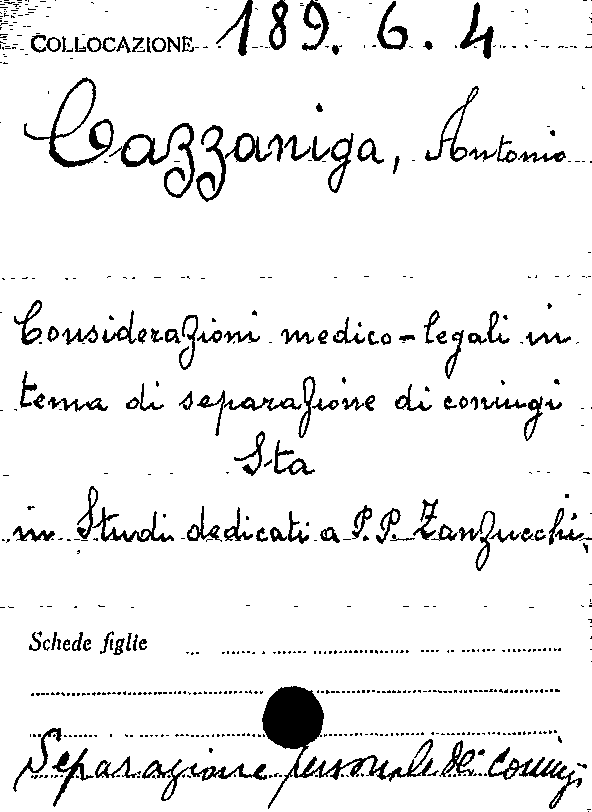 COLLOCAZIONE 189. 6. 4
Cazzaniga, Antonio
Considerazioni medico-legali in
tema di separazione di coniugi
Sta
in Studi dedicati a P.P. Zanzucchi,
Schede figlie
Separazione personale dei coniugi